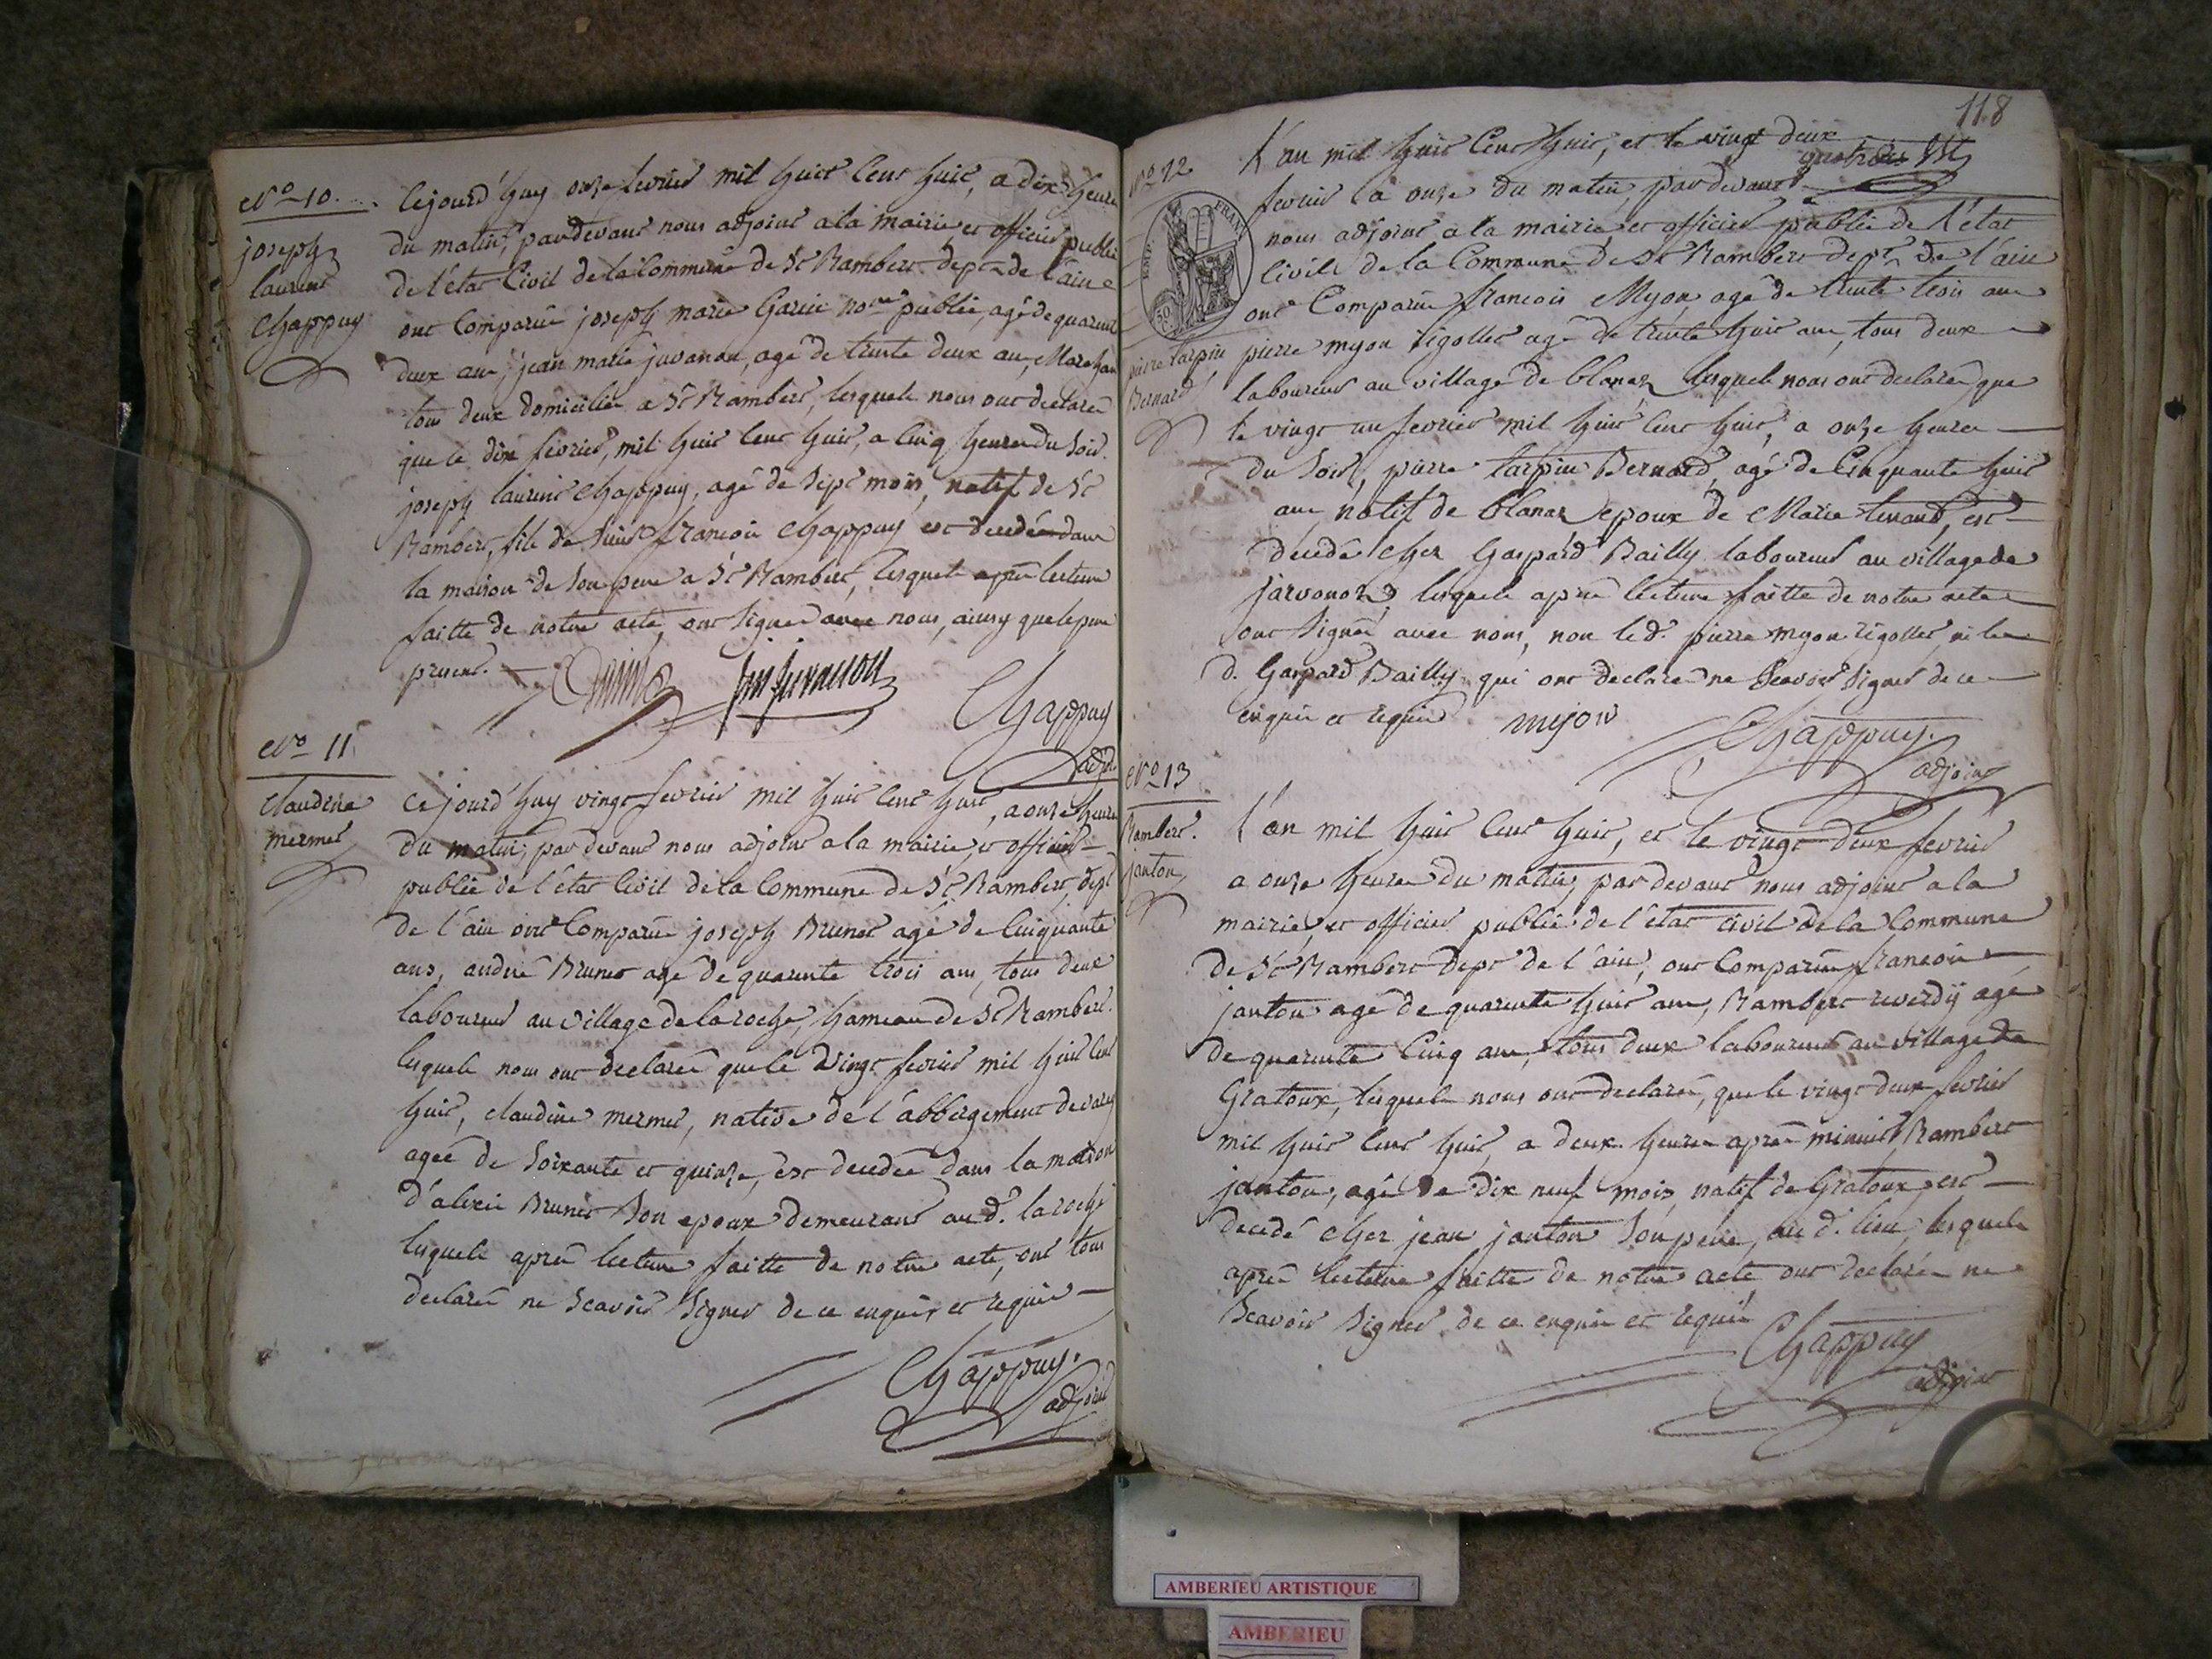 No 10.
joseph
laurent
Chappuy
Cejourd'huy onze fevrier mil huit Cent huit, a dix heure
du matin, pardevant nous adjoint a la mairie et officier public
de l'état Civil de la Commune de St Rambert dept de l'ain
ont Comparû joseph marie Garin nore public, agé de quarante
deux ans, jean marie juvanon, agé de trente deux ans, Marchan
tous deux domiciliés a St Rambert, lesquels nous ont declarés
que le dix fevrier, mil huit Cent huit, a Cinq heures du Soir
joseph laurent Chappuy, agé de Sept mois, natif de St
Rambert, fils de Sieur francois Chappuy est decedé dans
la maison de Son pere a St Rambert, lesquels après lecture
faitte de notre acte, ont Signés avec nous, ainsy que le pere
present.
jm juvanon
Chappuy
adjt
No 11
Claudine
mermet
Ce jourd'huy vingt fevrier mil huit Cent huit, a onze heure
du matin, pardevant nous adjoint a la mairie, et officier
public de l'état Civil de la Commune de St Rambert, dept
de l'ain ont Comparû joseph Brunet agé de Cinquante
ans, andré Brunet agé de quarante trois ans, tous deux
laboureurs au village de la roche, hameau de St Rambert.
lesquels nous ont declarés que le vingt fevrier mil huit Cent
huit, Claudine mermet, native de l'abbergement de varey
ageé de Soixante et quinze, est decedeé dans la maison
d'alexis Brunet Son epoux demeurant aud. laroche
lesquels après lecture faitte de notre acte, ont tous
declarés ne Scavoir Signer de ce enquis et requis
Chappuy.
adjoint
118
No 12
pierre tarpin
Bernard
L'an mil huit Cent huit, et le vingt deux
fevrier a onze du matin, pardevant
nous adjoint a la mairie et officier public de l'état
Civile de la Commune de St Rambert dept de l'ain
ont Comparû francois Myon agé de trente trois ans
pierre myon rigollet agé de trente huit ans, tous deux
laboureurs au village de blanaz lesquels nous ont declarés que
le vingt un fevrier mil huit Cent huit, a onze heures
du Soir, pierre tarpin Bernard, agé de Cinquante huit
ans natif de blanaz epoux de Marie tenand, est
decedé chez Gaspard Bailly laboureur au village de
javornoz, lesquels après lecture faitte de notre acte
ont Signés avec nous, non led. pierre myon rigollet, ni le
d. Gaspard Bailly qui ont declarés ne Scavoir Signer de ce
enquis et requis
mijon
Chappuy.
adjoint
No 13
Rambert.
janton
L'an mil huit Cent huit, et le vingt deux fevrier
a onze heures du matin, pardevant nous adjoint a la
mairie, et officier public de l'état civil de la Commune
de St Rambert dept de l'ain, ont Comparûs francois
janton agé de quarante huit ans, Rambert reverdÿ agé
de quarante Cinq ans, tous deux laboureurs au village de
Gratoux, lesquels nous ont declarés, que le vingt deux fevrier
mil huit Cent huit, a deux heures après minuit Rambert
janton, agé de dix neuf mois, natif de Gratoux, est
decedé chez jean janton Son pere, aud. lieu, lesquels
après lecture faitte de notre acte, ont declarés ne
Scavoir Signer de ce enquis et requis
Chappuy
adjoint
AMBERIEU ARTISTIQUE
AMBERIEU